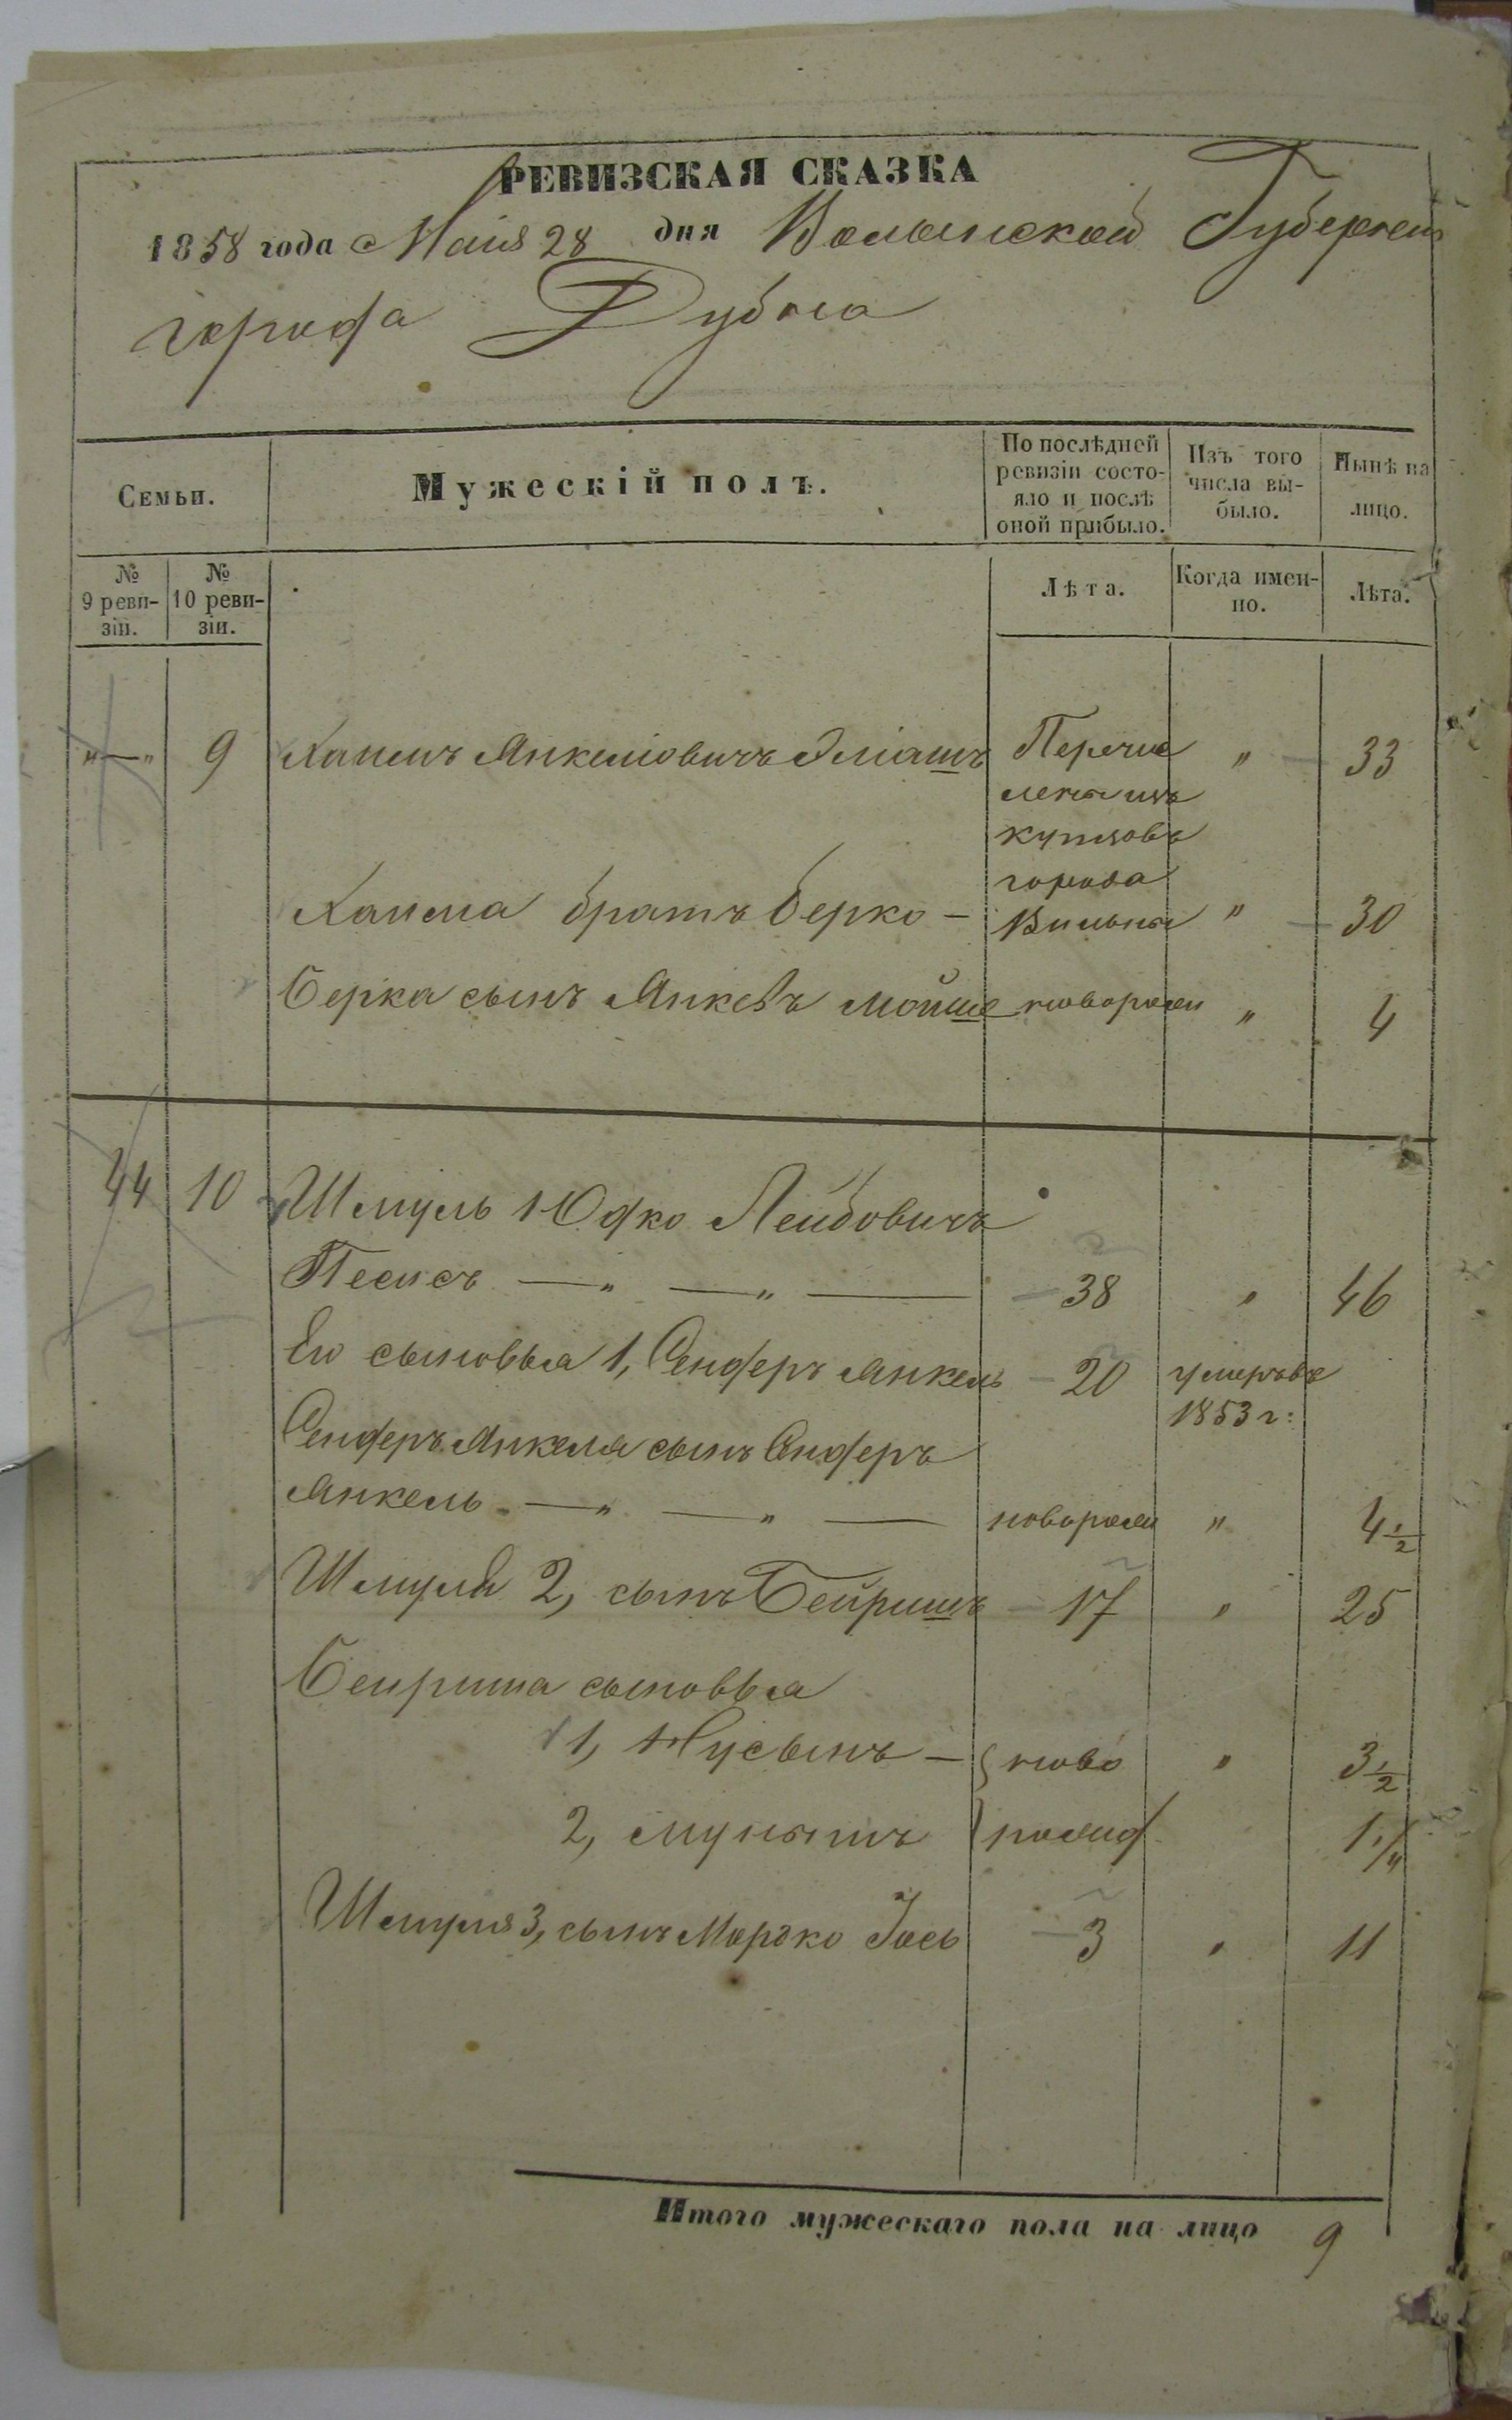 РЕВИЗСКАЯ СКАЗКА
1858 года Маія 28 дня Волынской Губерніи
города Дубна
Семьи.
Мужескій полъ.
По послѣдней ревизіи состо-яло и послѣ оной прибыло.
Изъ того числа вы-было.
Нынѣ на лицо.
№ 9 реви-зіи.
№ 10 реви-зіи.
Лѣта.
Когда имен-но.
Лѣта.
"—" 9 Хаимъ Янкелiовичъ Эліашъ Перечис " 33
ленъ изъ
купцовъ
города
Хаима братъ Берко — Вильны " 30
Берка сынъ Янкевъ Мойше новорожден " 4
44 10 Шмуль Юдко Лейбовичъ
Песисъ —"—"— 38 " 46
Его сыновья 1, Сендеръ Янкель 20 умеръ въ
1853 г:
Сендеръ Янкеля сынъ Сендеръ
Янкель —"—"— новорожден " 4 1/2
Шмуля 2, сынъ Бейришъ 17 " 25
Бейриша сыновья
1, Нусынъ — ново " 3 1/2
2, рожд 1 1/4
Шмуля 3, сынъ Мордко Іось 3 " 11
Итого мужескаго пола на лицо 9